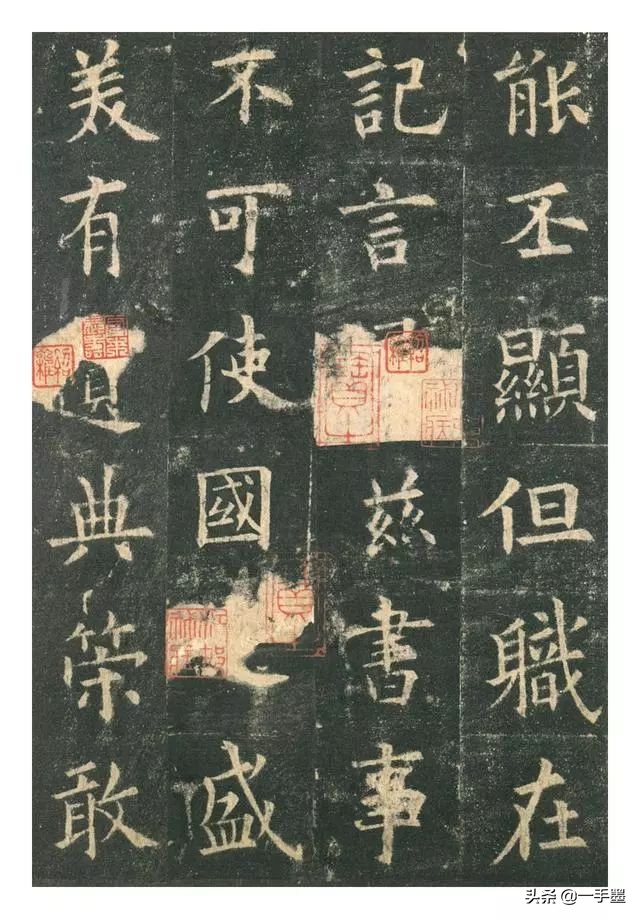 能丕顯但職在
記言兹書事
不可使國之盛
美有遺典策敢
头条 @一手墨